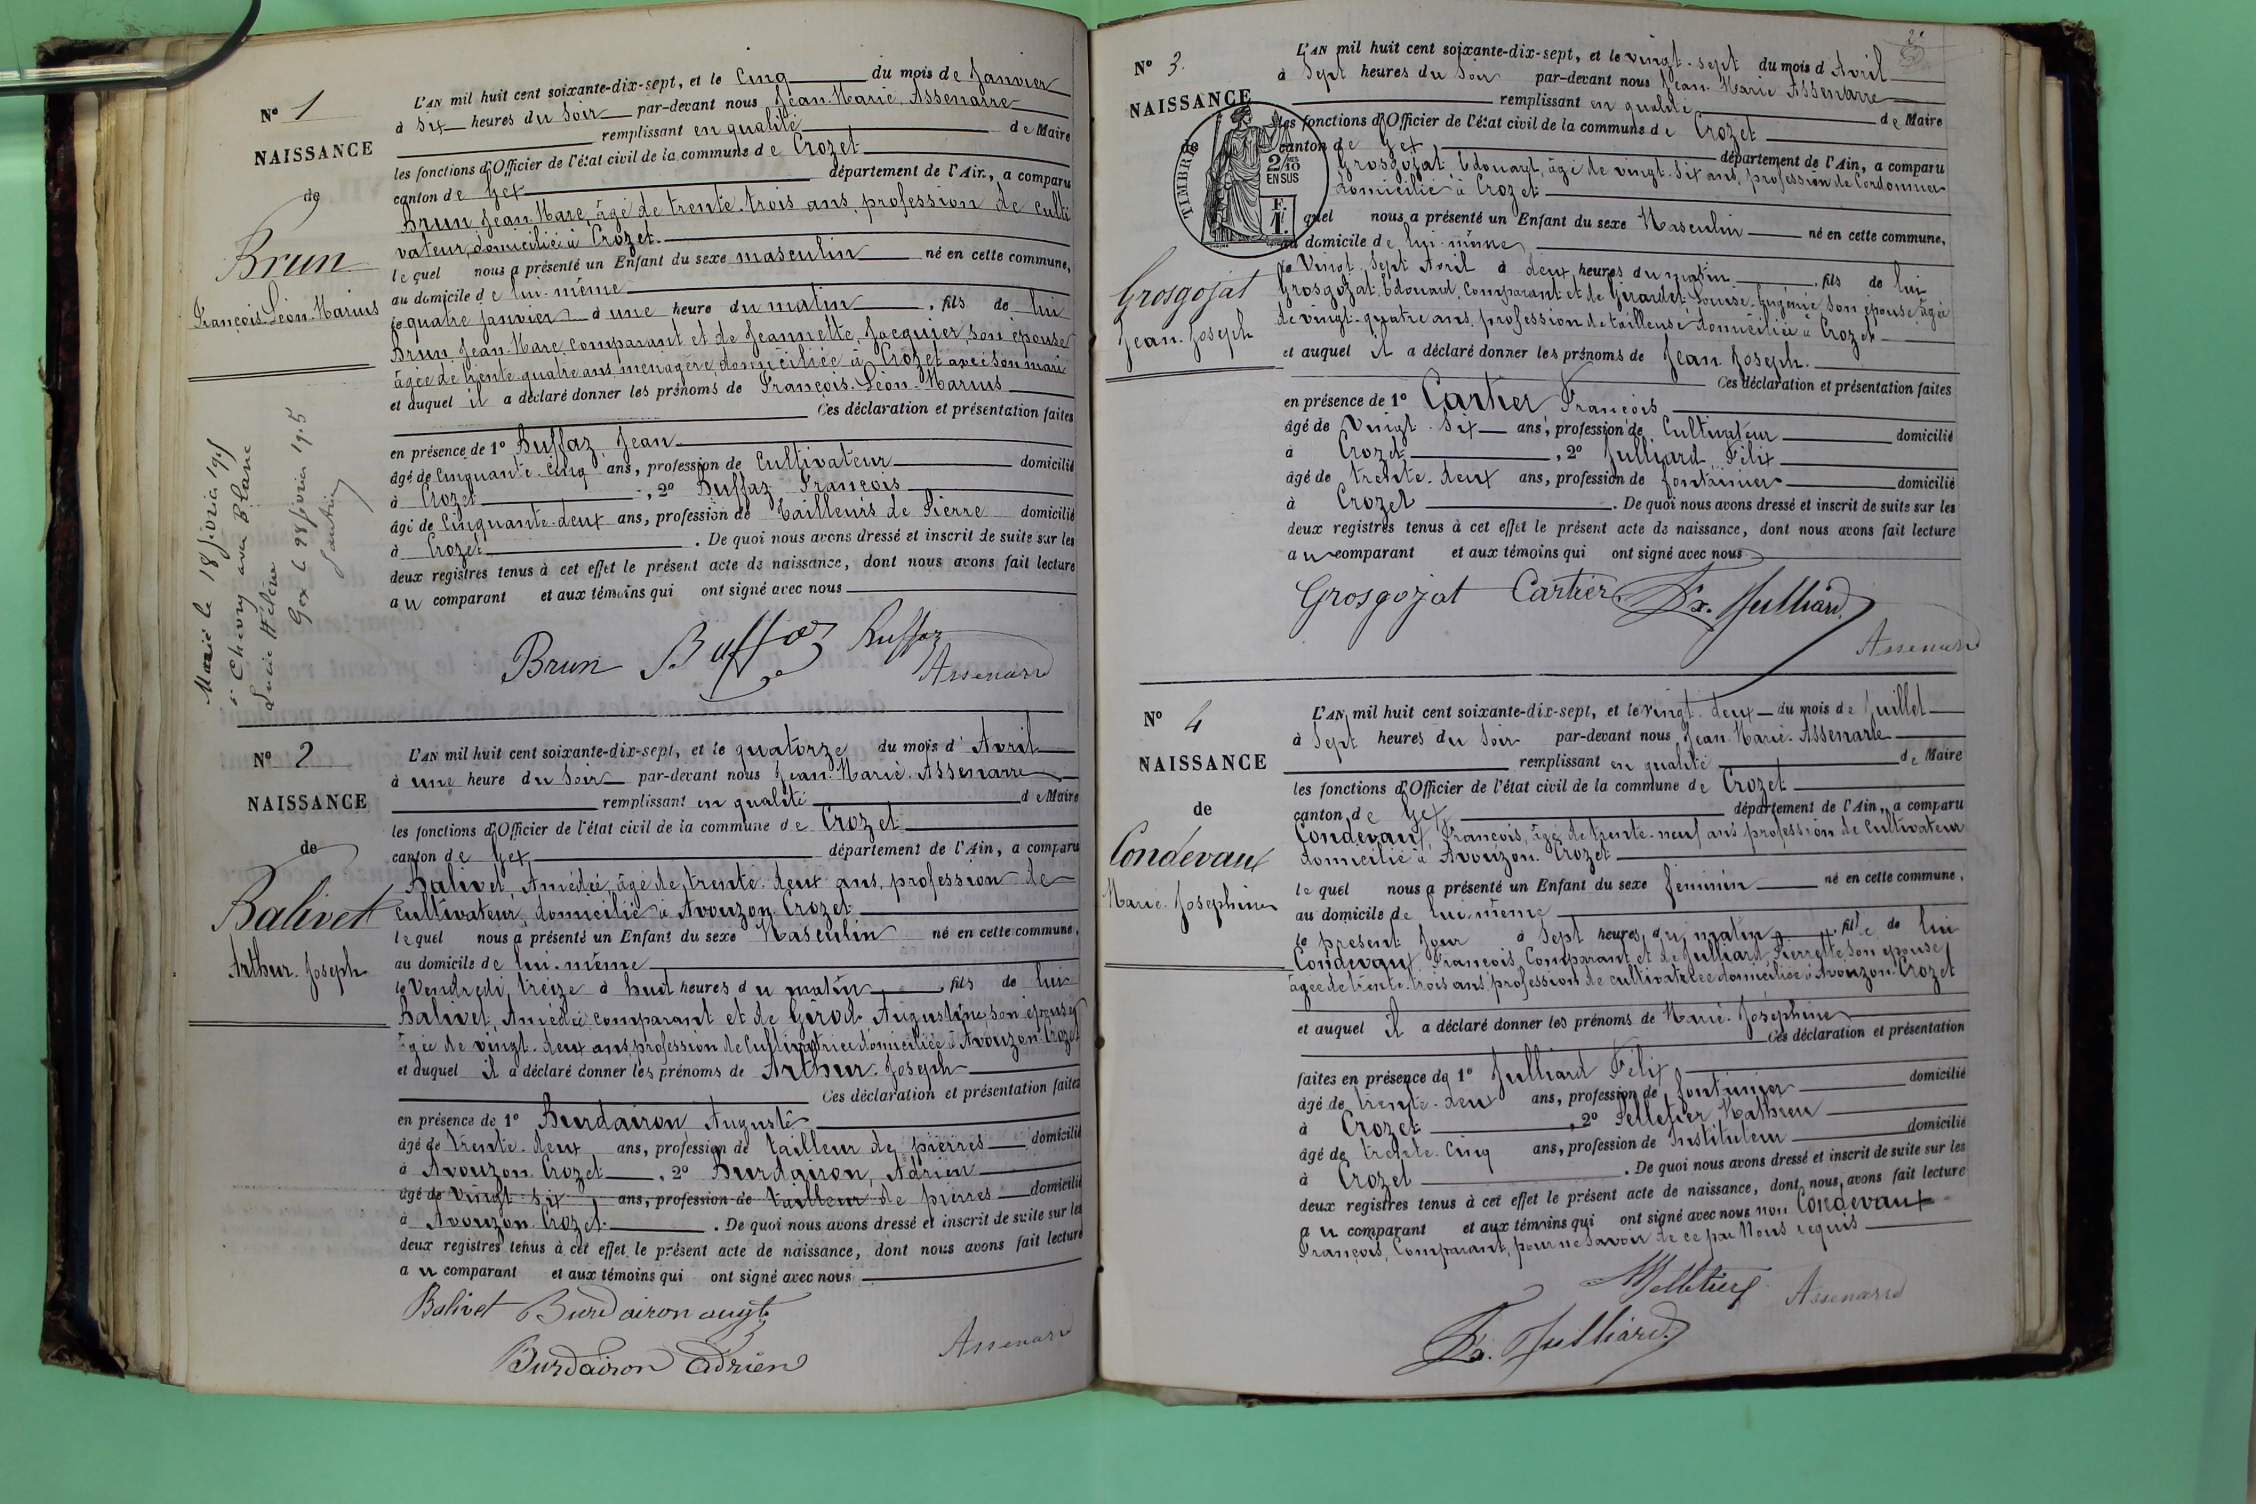 N° 1
NAISSANCE
de
Brun
François Léon Marius
L'AN mil huit cent soixante-dix-sept, et le cinq du mois de Janvier
à six heures du Soir par-devant nous Jean Marie Assenarre
remplissant en qualité de Maire
les fonctions d'Officier de l'état civil de la commune de Crozet
canton de Gex département de l'Ain, a comparu
Brun Jean Marc, âgé de trente-trois ans, profession de culti
vateur, domicilié à Crozet.
le quel nous a présenté un Enfant du sexe masculin né en cette commune,
au domicile de lui-même
le quatre janvier à une heure du matin, fils de lui
Brun Jean Marc comparant et de Jeannette Jacquier, son épouse
âgée de trente quatre ans, menagère, domiciliée à Crozet avec son mari
et auquel il a déclaré donner les prénoms de François Léon Marius
Ces déclaration et présentation faites
en présence de 1° Buffaz Jean
âgé de Cinquante Cinq ans, profession de Cultivateur domicilié
à Crozet, 2° Buffaz François
âgé de Cinquante-deux ans, profession de Tailleurs de Pierre domicilié
à Crozet. De quoi nous avons dressé et inscrit de suite sur les
deux registres tenus à cet effet le présent acte de naissance, dont nous avons fait lecture
au comparant et aux témoins qui ont signé avec nous
Brun Buffaz Buffaz
Assenard
Marié le 18 février
à Chevry avec Blanc
Lucie Hélène
Gex le 28 février
N° 2
NAISSANCE
de
Balivet
Arthur Joseph
L'AN mil huit cent soixante-dix-sept, et le quatorze du mois d'Avril
à une heure du Soir par-devant nous Jean Marie Assenarre
remplissant en qualité de Maire
les fonctions d'Officier de l'état civil de la commune de Crozet
canton de Gex département de l'Ain, a comparu
Balivet, Amédée, âgé de trente deux ans, profession de
cultivateur, domicilié à Avouzon Crozet
le quel nous a présenté un Enfant du sexe Masculin né en cette commune,
au domicile de lui-même
le Vendredi treize à huit heures du matin, fils de lui
Balivet, Amédée comparant et de Girod Augustine, son épouse
âgée de vingt-deux ans, profession de Cultivatrice domiciliée à Avouzon Crozet
et auquel il a déclaré donner les prénoms de Arthur Joseph
Ces déclaration et présentation faites
en présence de 1° Burdairon Auguste
âgé de trente deux ans, profession de tailleur de pierres domicilié
à Avouzon Crozet, 2° Burdairon, Adrien
âgé de vingt six ans, profession de tailleur de pierres domicilié
à Avouzon Crozet. De quoi nous avons dressé et inscrit de suite sur les
deux registres tenus à cet effet le présent acte de naissance, dont nous avons fait lecture
au comparant et aux témoins qui ont signé avec nous
Balivet Burdairon augte
Burdairon Adrien Assenard
N° 3
NAISSANCE
de
TIMBRE
2/10
EN SUS
F.
1
Grosgojat
Jean Joseph
L'AN mil huit cent soixante-dix-sept, et le vingt-sept du mois d'Avril
à Sept heures du Soir par-devant nous Jean Marie Assenarre
remplissant en qualité de Maire
les fonctions d'Officier de l'état civil de la commune de Crozet
canton de Gex département de l'Ain, a comparu
Grosgojat, Edouard, âgé de vingt-six ans, profession de Cordonnier
domicilié à Crozet
quel nous a présenté un Enfant du sexe Masculin né en cette commune,
au domicile de lui-même
le Vingt sept Avril à deux heures du matin, fils de lui
Grosgojat, Edouard, comparant et de Girardet Louise Eugénie son épouse âgée
de vingt-quatre ans, profession de tailleuse domiciliée à Crozet
et auquel il a déclaré donner les prénoms de Jean Joseph.
Ces déclaration et présentation faites
en présence de 1° Cartier François
âgé de Vingt-Six ans, profession de Cultivateur domicilié
à Crozet, 2° Julliard, Félix
âgé de trente deux ans, profession de fontainier domicilié
à Crozet. De quoi nous avons dressé et inscrit de suite sur les
deux registres tenus à cet effet le présent acte de naissance, dont nous avons fait lecture
au comparant et aux témoins qui ont signé avec nous
Grosgojat Cartier Fx. Julliard
Assenard
N° 4
NAISSANCE
de
Condevaux
Marie Josephine
L'AN mil huit cent soixante-dix-sept, et le vingt deux du mois de Juillet
à Sept heures du Soir par-devant nous Jean Marie Assenarre
remplissant en qualité de Maire
les fonctions d'Officier de l'état civil de la commune de Crozet
canton de Gex département de l'Ain, a comparu
Condevaux, François, âgé de trente-neuf ans profession de Cultivateur
domicilié à Avouzon Crozet
le quel nous a présenté un Enfant du sexe féminin né en cette commune,
au domicile de lui-même
le présent Jour à Sept heures du matin, fille de lui
Condevaux François, Comparant et de Julliard Pierrette, son épouse
âgée de trente-trois ans, profession de cultivatrice domiciliée à Avouzon Crozet
et auquel il a déclaré donner les prénoms de Marie Joséphine
Ces déclaration et présentation
faites en présence de 1° Julliard Félix
âgé de trente-deux ans, profession de fontainier domicilié
à Crozet, 2° Pelletier Mathieu
âgé de trente cinq ans, profession de Instituteur domicilié
à Crozet. De quoi nous avons dressé et inscrit de suite sur les
deux registres tenus à cet effet le présent acte de naissance, dont nous avons fait lecture
au comparant et aux témoins qui ont signé avec nous non Condevaux
François, Comparant, pour ne savoir de ce par Nous requis
Pelletier Assenard
Fx. Julliard